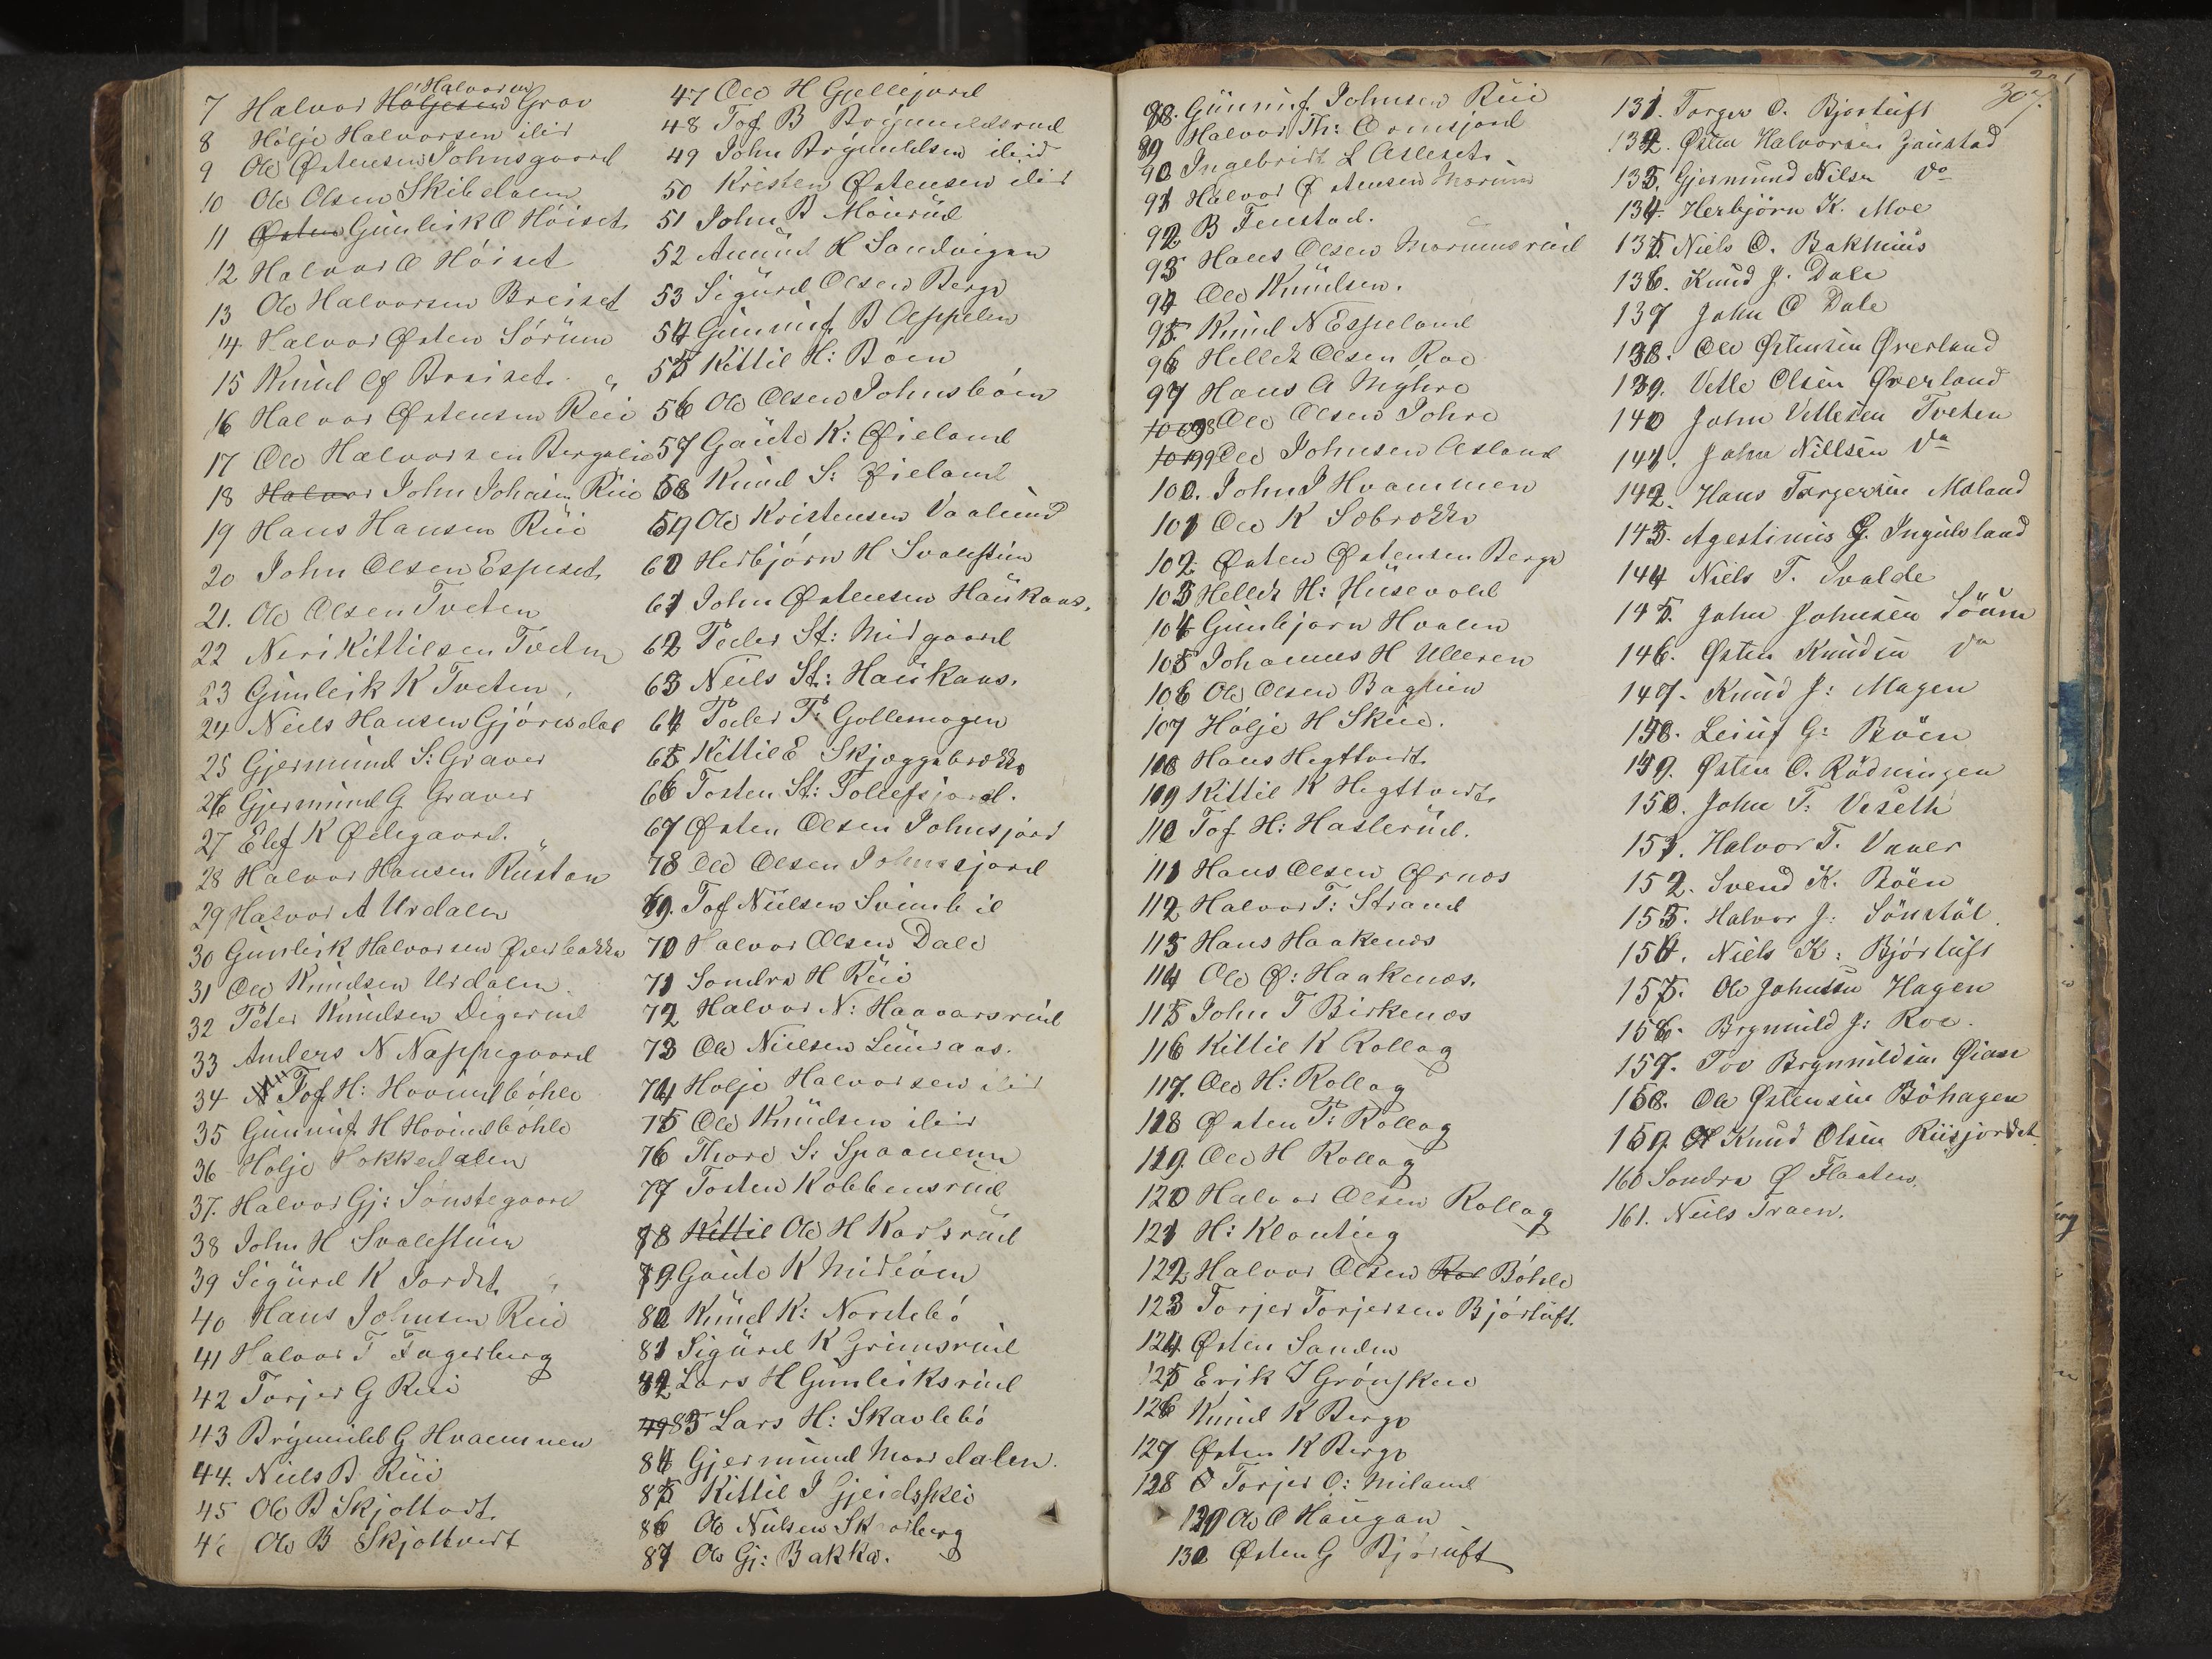 7 Halvor Holjesen Halvorsen Grav
8 Hölje Halvorsen ibid
9 Ole Østensen Johnsgaard
10 Ole Olsen Skibsdalen
11 Østen Gunleik O Höiset
12 Halvor O Höiset
13 Ole Halvorsen Breiset
14 Halvor Østen Sörum
15 Knud O Breiset
16 Halvor Østensen Rue
17 Ole Halvorsen Bergslie
18 Halvor John Johnsen Rue
19 Hans Hansen Rue
20 John Olsen Espeset
21. Ole Olsen Tveten
22 Neri Kittilsen Tveten
23 Gunleik K Tveten
24 Niels Hansen Gjörisdal
25 Gjermund S: Graver
26 Gjermund G Graver
27 Elef K Ødegaard.
28 Halvor Hansen Rustan
29 Halvor A Urdalen
30 Gunleik Halvorsen Øverbakka
31 Ole Knudsen Urdalen
32 Peter Knudsen Digerud
33 Anders N Nappegaard
34 Tof H: Hovindböhle
35 Gunnuf H Hovindböhle
36 Holje Hokkedalen
37. Halvor Gj: Sönstegaard
38 John H Svalestuen
39 Sigurd K Jordet
40 Hans Johnsen Rue
41 Halvor T Fagerberg
42 Torjer G Rue
43 Brynuld G Hvammen
44. Niels B Rue
45 Ole B Skjoltvedt
46 Ole B Skjoltvedt
47 Ole H Gjellejord
48 Tof B Brynuldsrud
49 John Brynuldsen ibid
50 Kristen Østensen ibid
51 John B Mourud
52 Amund H Sandvigen
53 Sigurd Olsen Berge
54 Gunnuf B Oppelien
55 Kittil H: Böen
56 Ole Olsen Johnsböen
57 Gaute K: Øieland
58 Knud S: Øieland
59 Ole Kristensen Vaalund
60 Herbjörn H Svalestuen
61 John Østensen Haukaas.
62 Peder St: Midgaard
63 Neils St: Haukaas.
64 Peder P: Gollemogen
65 Kittil E Skjæggebrække
66 Tosten St: Tollefsjord.
67 Østen Olsen Johnsjord
78 Ole Olsen Johnssjord
69. Tof Nielsen Svimbil
70 Halvor Olsen Dale
71 Sondre H Rue
72 Halvor N: Haavarsrud
73 Ole Nielsen Lundaas.
74 Holje Halvorsen ibid
75 Ole Knudsen ibid
76 Thore S: Spaanem
77 Tosten Kobbensrud
78 Kittil Ole H Karlsrud
79 Gaute K Midböen
80 Knud K: Nordebö
81 Sigurd K Grimsrud
82 Lars H Gunleiksrud
49 83 Lars H: Skavlebö
84 Gjermund Mordalen.
85 Kittil J Gjeidsklei
86 Ole Nielsen Skarberg
87 Ole Gj: Bakka.
307.
88. Gunnuf Johnsen Rue
89 Halvor Th: Ormsjord
90 Ingebrigt L Asleset.
91 Halvor Østensen Morum
92 B Fenstad.
93 Hans Olsen Morumsrud
94 Ole Knudsen.
95. Knud N Espeland
96 Hellek Olsen Roe
97 Hans A Myhre
98 Ole Olsen Johre
99 Ole Johnsen Asland
100. John J Hvammen
101 Ole K Sæbrække
102. Østen Østensen Berge
103 Hellek H: Husevold
104 Gunbjörn Hvalen
105 Johannes H Ulleren
106 Ole Olsen Baglien
107 Hölje H Skue.
108 Hans Hegttvedt
109 Kittil K Hegttvedt
110 Tof H: Haslerud.
111 Hans Olsen Ørnæs
112 Halvor T: Strand
113 Hans Haakenæs
114 Ole Ø: Haakenæs.
115 John T Birkenæs
116 Kittil K Rollag
117. Ole H: Rollag
118 Østen P: Rollag
119. Ole H Rollag
120 Halvor Olsen Rollag
121 H: Klonteig
122 Halvor Olsen Rol Böhle
123 Torjer Torjersen Bjórtuft.
124. Østen Sanden
125 Erik J Grönskue
126 Knud K Berge
127 Østen K Berge
128 Torjer O: Miland
129 Ole O Haugan
130 Østen G Bjórtuft
131. Torger O. Bjortuft
132. Østen Halvorsen Gaustad
133. Gjermund Nilsen Do
134. Herbjörn K. Moe
135. Niels O. Bakhuus
136. Knud J. Dale
137 John O Dale
138. Ole Østensen Øverland
139. Vetle Olsen Øverland
140 John Vetlesen Tveten
141. John Nillsen Do
142. Hans Torgersen Maland
143. Agestinus G. Ingulsland
144 Niels T. Svalde
145. John Johnsen Söum
146. Østen Knudsen Do
147. Knud J: Magen
148. Leiuf G: Böen
149. Østen O. Rödningen
150. John T: Veseth
151. Halvor T. Vaaer
152. Svend K. Böen
153. Halvor J: Sönstöl
154. Niels K: Bjórtuft
155. Ole Johnsen Hagen
156. Brynuild J: Roe.
157. Tov Brynuildsen Øiaan
158. Ole Østensen Böhagen
159. Knud Olsen Riisjordet
160 Sondre Ø Flaaten.
161. Neils Traen.